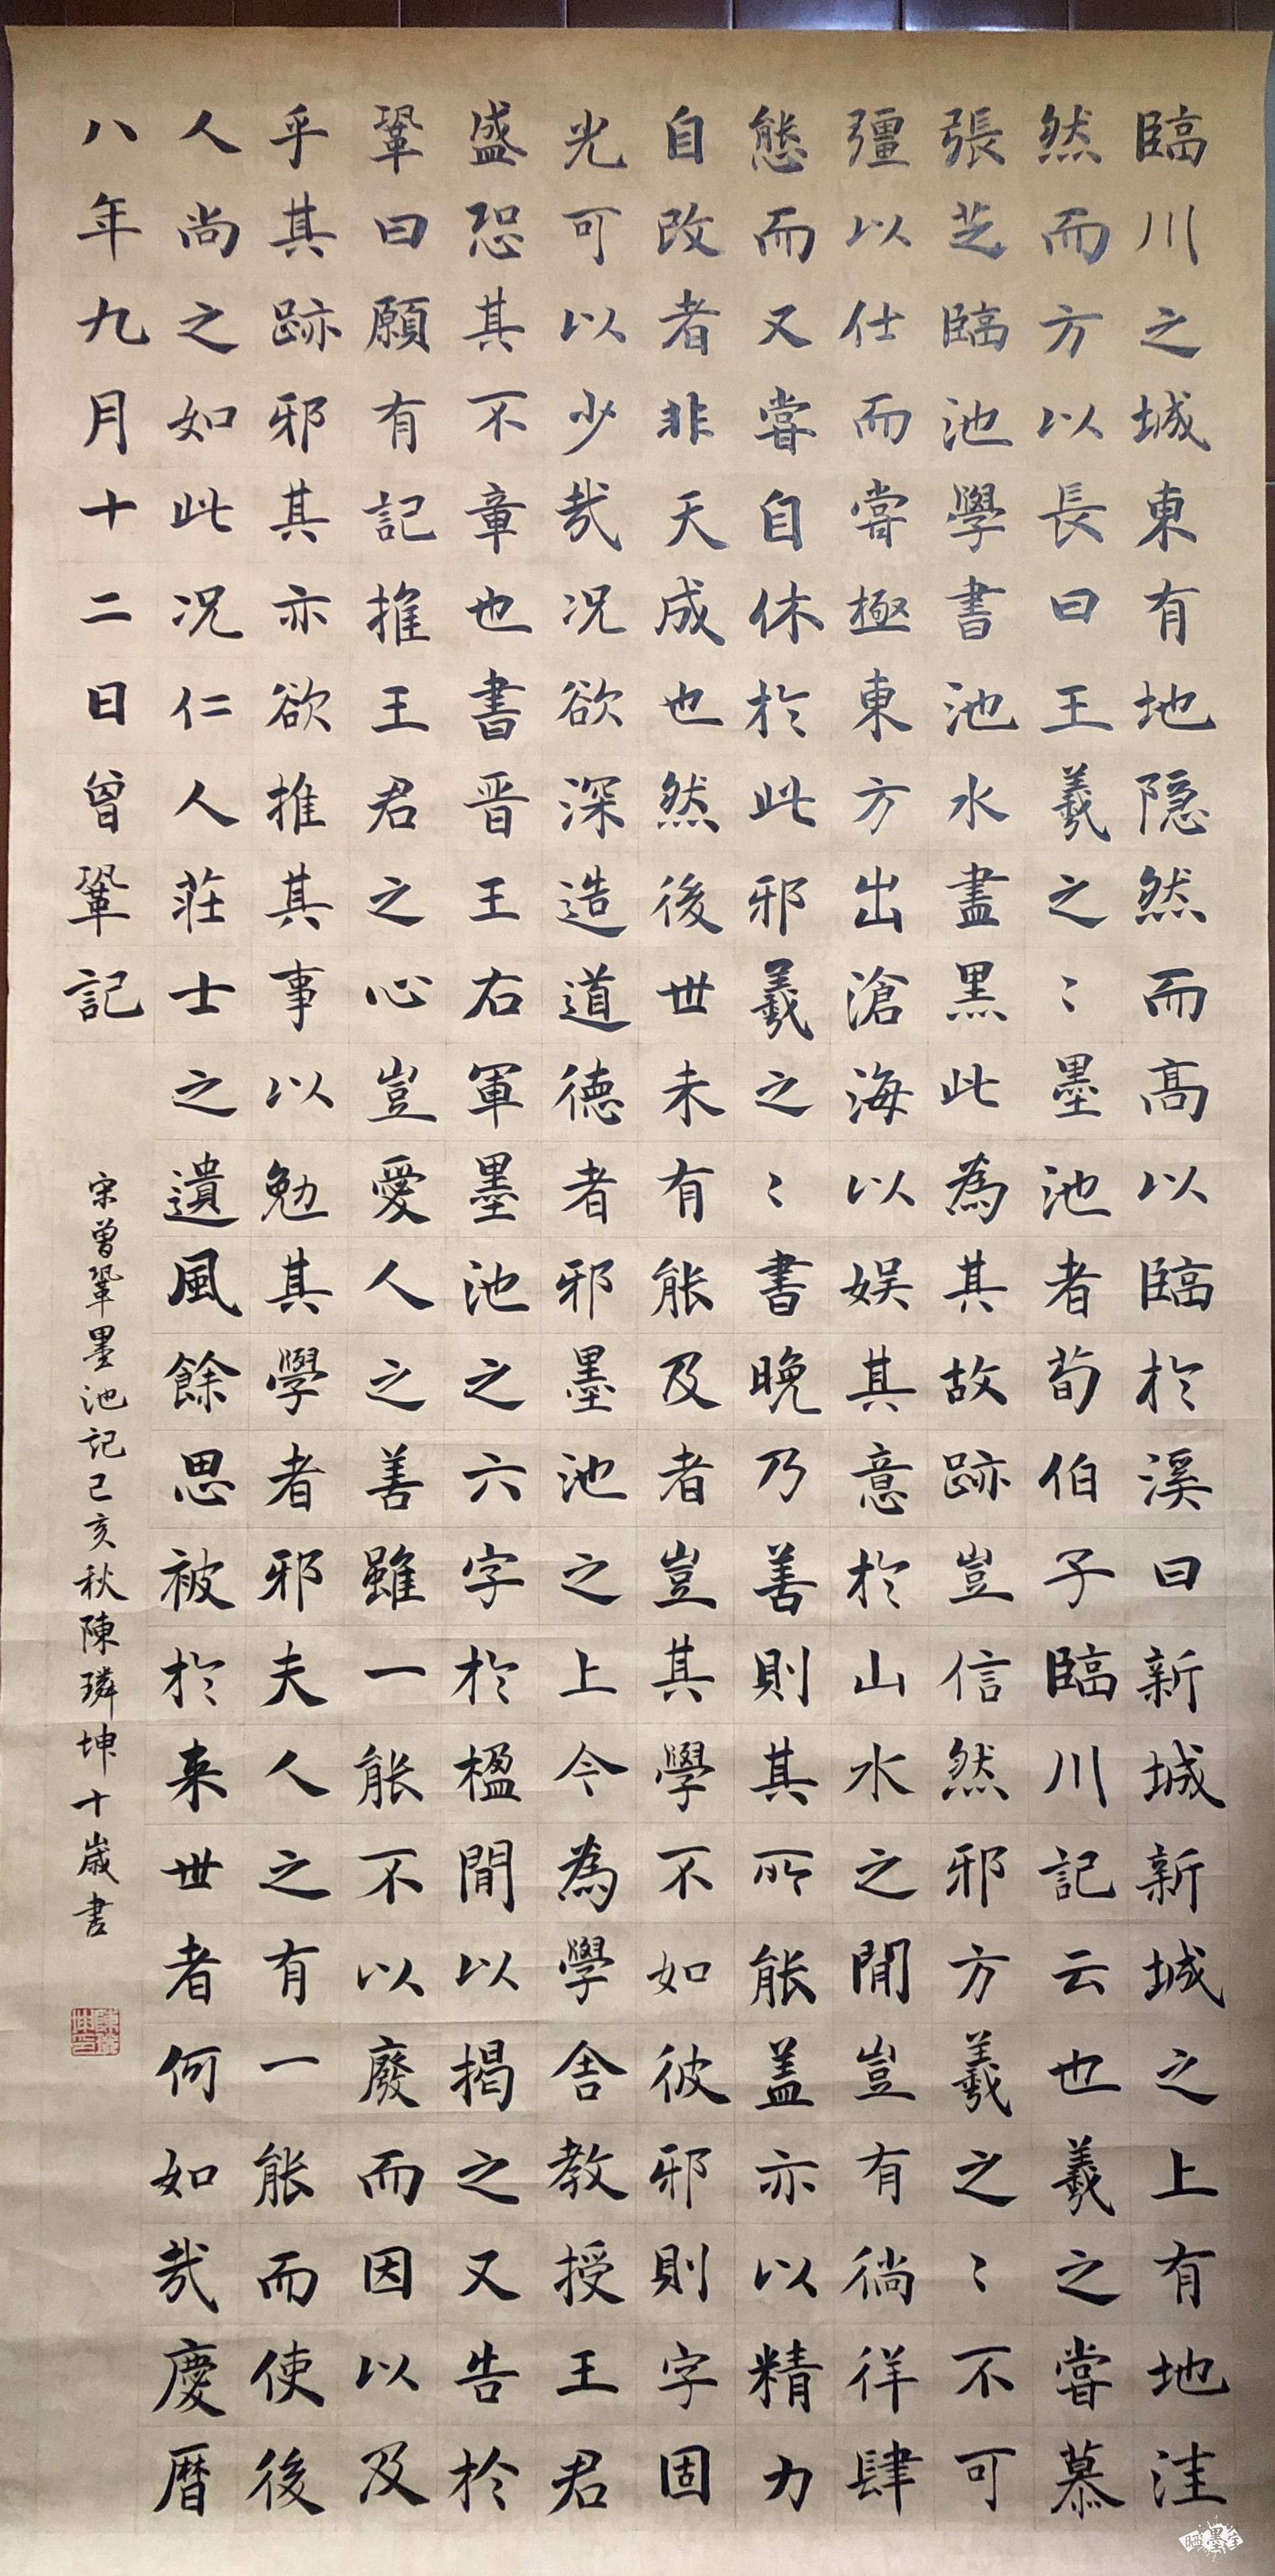 臨川之城東有地隐然而高以臨於溪曰新城新城之上有地洼
然而方以長曰王羲之〻墨池者荀伯子臨川記云也羲之嘗慕
張芝臨池學書池水盡黑此為其故跡豈信然邪方羲之〻不可
彊以仕而嘗極東方出滄海以娱其意於山水之閒豈有徜徉肆
態而又嘗自休於此邪羲之〻書晚乃善則其所能盖亦以精力
自改者非天成也然後世未有能及者豈其學不如彼邪則字固
光可以少哉况欲深造道德者邪墨池之上今為學舍教授王君
盛恐其不章也書晋王右軍墨池之六字於楹間以揭之又告於
鞏曰願有記推王君之心豈愛人之善雖一能不以廢而因以及
乎其跡邪其亦欲推其事以勉其學者邪夫人之有一能而使後
人尚之如此况仁人莊士之遺風餘思被於来世者何如哉慶暦
八年九月十二日曾鞏記
宋曾鞏墨池記己亥秋陳璘坤十歲書
陳璘坤印
晒墨宝